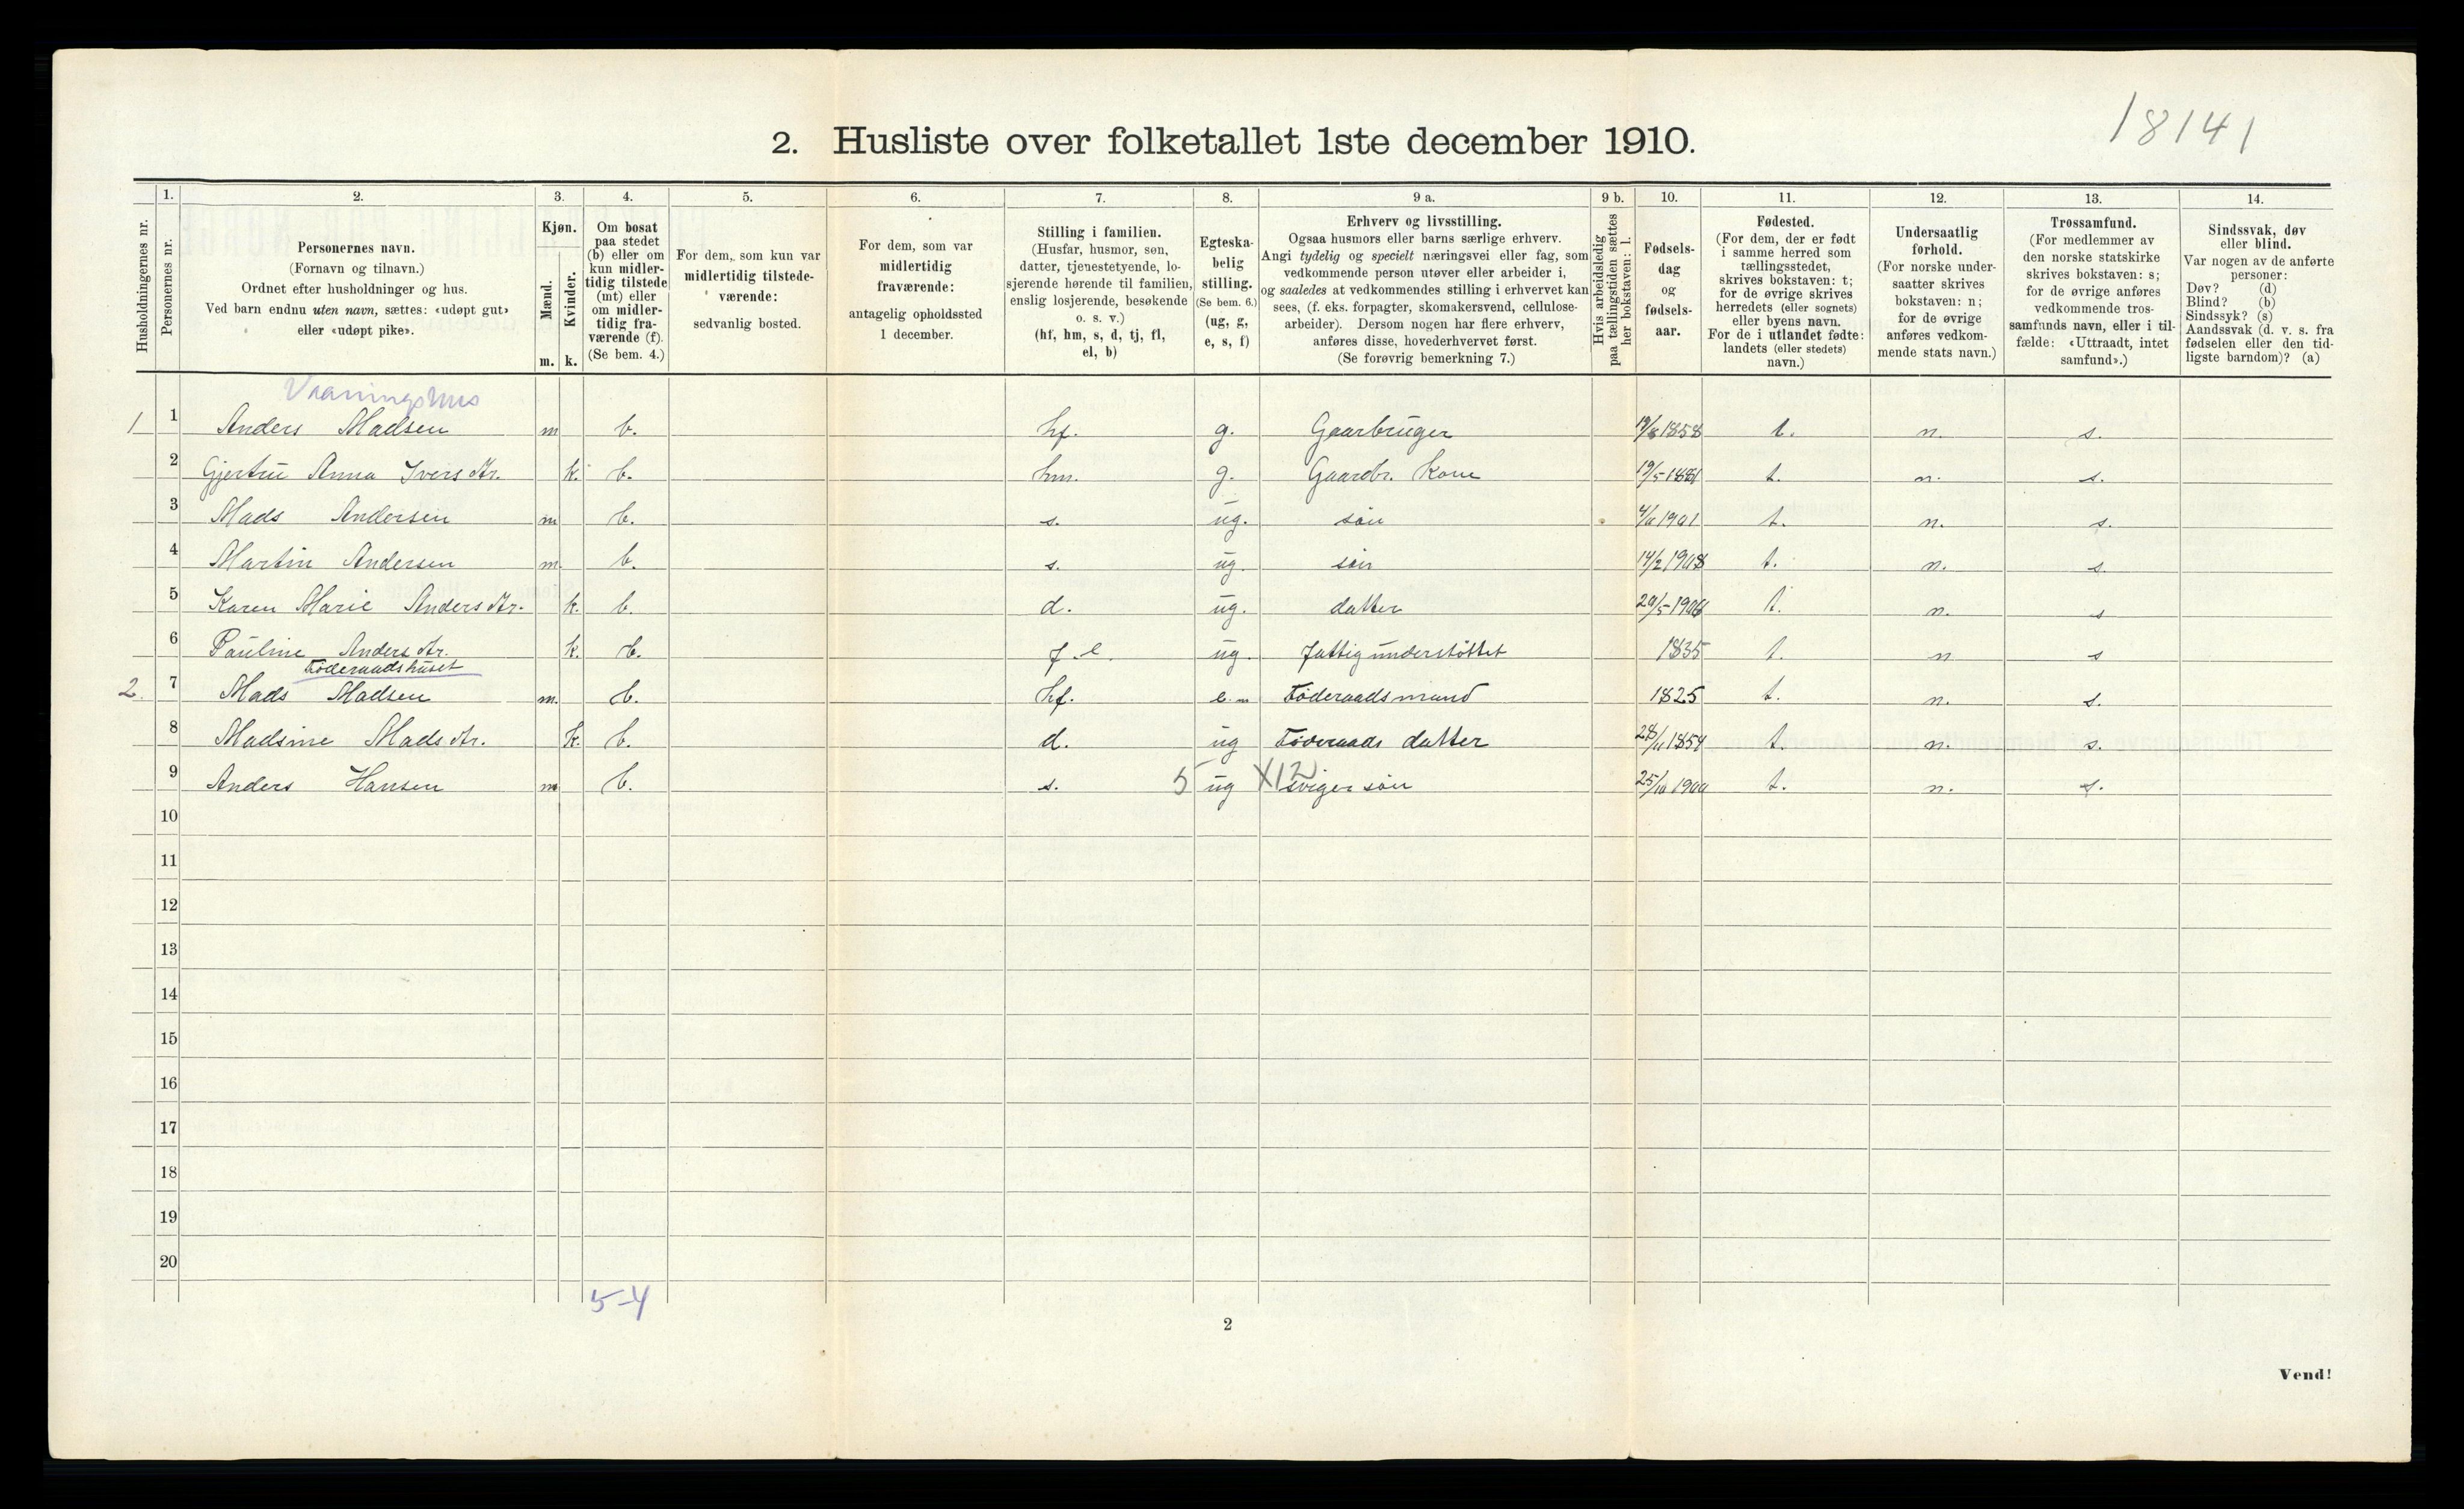 18141
2. Husliste over folketallet 1ste december 1910.
Husholdningernes nr.
1.
Personernes nr.
2.
Personernes navn.
(Fornavn og tilnavn.)
Ordnet efter husholdninger og hus.
Ved barn endnu uten navn, sættes: «udøpt gut»
eller «udøpt pike».
3.
Kjøn.
Mænd.
Kvinder.
m. k.
4.
Om bosat
paa stedet
(b) eller om
kun midler-
tidig tilstede
(mt) eller
om midler-
tidig fra-
værende (f).
(Se bem. 4.)
5.
For dem, som kun var
midlertidig tilstede-
værende:
sedvanlig bosted.
6.
For dem, som var
midlertidig
fraværende:
antagelig opholdssted
1 december.
7.
Stilling i familien.
(Husfar, husmor, søn,
datter, tjenestetyende, lo-
sjerende hørende til familien,
enslig losjerende, besøkende
o. s. v.)
(hf, hm, s, d, tj, fl,
el, b)
8.
Egteska-
belig
stilling.
(Se bem. 6.)
(ug, g,
e, s, f)
9 a.
Erhverv og livsstilling.
Ogsaa husmors eller barns særlige erhverv.
Angi tydelig og specielt næringsvei eller fag, som
vedkommende person utøver eller arbeider i,
og saaledes at vedkommendes stilling i erhvervet kan
sees, (f. eks. forpagter, skomakersvend, cellulose-
arbeider). Dersom nogen har flere erhverv,
anføres disse, hovederhvervet først.
(Se forøvrig bemerkning 7.)
9 b.
Hvis arbeidsledig
paa tællingstiden sættes
her bokstaven: l.
10.
Fødsels-
dag
og
fødsels-
aar.
11.
Fødested.
(For dem, der er født
i samme herred som
tællingsstedet,
skrives bokstaven: t;
for de øvrige skrives
herredets (eller sognets)
eller byens navn.
For de i utlandet fødte:
landets (eller stedets)
navn.)
12.
Undersaatlig
forhold.
(For norske under-
saatter skrives
bokstaven: n;
for de øvrige
anføres vedkom-
mende stats navn.)
13.
Trossamfund.
(For medlemmer av
den norske statskirke
skrives bokstaven: s;
for de øvrige anføres
vedkommende tros-
samfunds navn, eller i til-
fælde: «Uttraadt, intet
samfund».)
14.
Sindssvak, døv
eller blind.
Var nogen av de anførte
personer:
Døv? (d)
Blind? (b)
Sindssyk? (s)
Aandssvak (d. v. s. fra
fødselen eller den tid-
ligste barndom)? (a)
Vaaningshus
1 1 Anders Madsen m b. hf. g. Gaarbruger 1858 t. n. s.
2 Gjertru Anna Ivers dtr. k. b. hm. g. Gaardbr. Kone t. n. s.
3 Mads Andersen m b. s. ug. søn 1901 t. n. s.
4 Martin Andersen m. b. s. ug. søn 14/2 1908 t. n. s.
5 Karen Marie Anders dtr. k. b. d. ug. datter t. n. s
6 Pauline Anders dtr. k. b. f l. ug. fattigunderstöttet 1835 t. n s
Föderaadshuset
2. 7 Mads Madsen m. b. hf. e. m Föderaadsmand 1825 t. n. s.
8 Madsine Mads dtr. k. b. d. ug Föderaads datter 28/11 1854 t. n. s.
9 Anders Hansen m b. s. 5 ug X12 sviger søn 25/10 1900 t. n. s.
10
11
12
13
14
15
16
17
18
19
20
5-4
2
Vend!